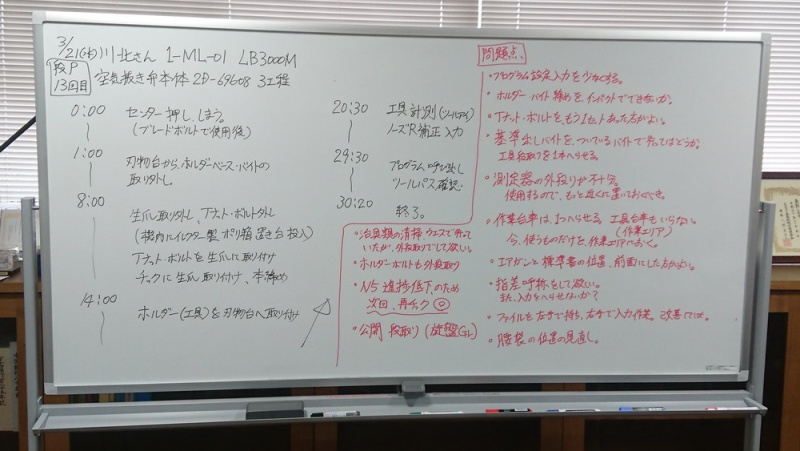 3/21(水) 川北さん 1-ML-01 LB3000M
段P 13回目
空気抜き弁本体 2D-69608 3工程
0:00 センター押ししまう。
(ブレードボルトで使用後)
1:00 刃物台から、ホルダーベース・バイトの
取り外し。
8:00
生爪取り外し、Tナット・ボルト外し
(機内にイルクター盤、ポリ箱置き台投入)
Tナット・ボルトを生爪に取付け
チャックに生爪取り付け、本締め
14:00
ホルダー(工具)を刃物台へ取り付け
20:30 工具計測(ツールアイ)
ノーズR補正入力
29:30
プログラム呼び出し
ツールパス確認
30:20 終了。
・治具類の清掃ウエスで行って
いたが、外段取りでして欲しい。
・ホルダーボルトも外段取り
・N5進捗低下のため
次回、再チャク ◎
・公開段取り(旋盤GL)
問題点
・プログラム設定入力を少なくする。
・ホルダーバイト締めを、インパクトでできないか。
・Tナットボルトを、もう1セットあった方がよい。
・基準出しバイトを、ついているバイトで行ってはどうか。
工具段取りを1本へらせる。
・測定器の外段りが不十分。
使用するので、もっと近くに置いておくべき。
・作業台車は、1つへらせる 工具台車もいらない。
(作業エリア)
今、使うものだけを、作業エリアへおく。
・エアガンと標準書の位置、前面にした方がよい。
・指差呼称をして欲しい。
また、入力をへらせないか?
・ファイルを左手で持ち、右手で入力作業。改善しては。
・腰袋の位置の見直し。